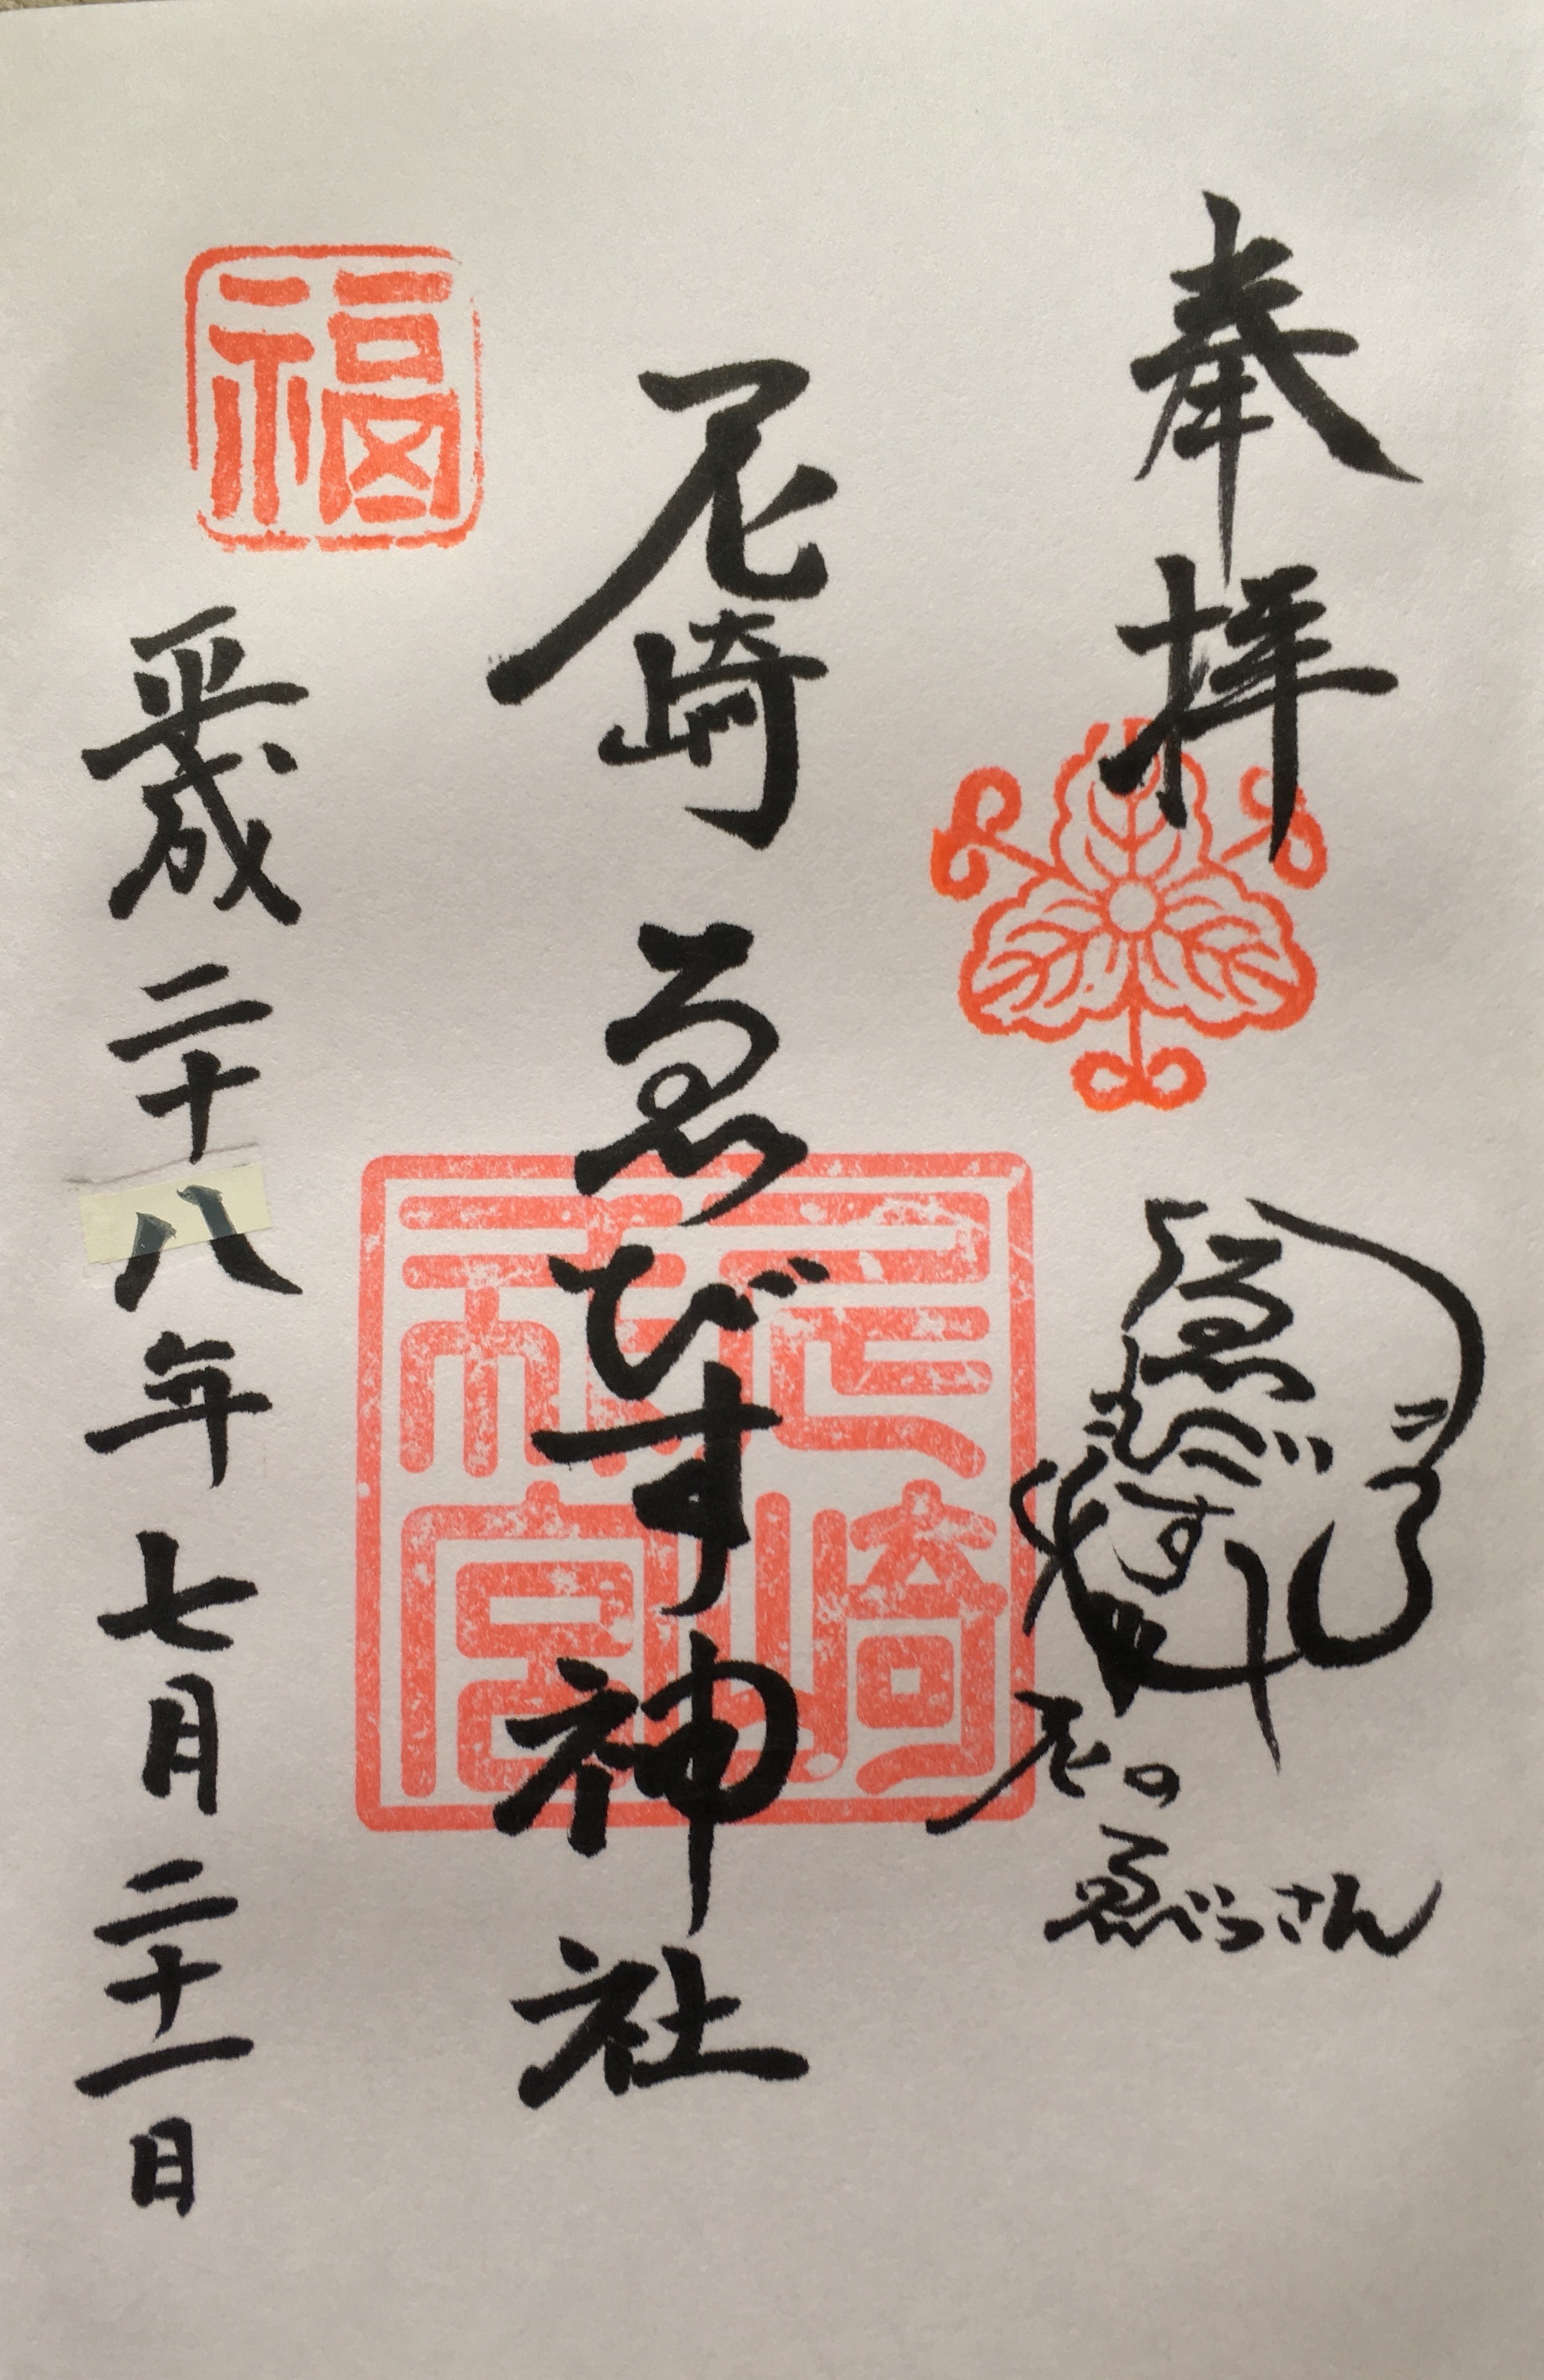 奉拝
ゑびす
尼のゑべっさん
尼崎ゑびす神社
尼崎
神社
福
平成二十八年七月二十一日